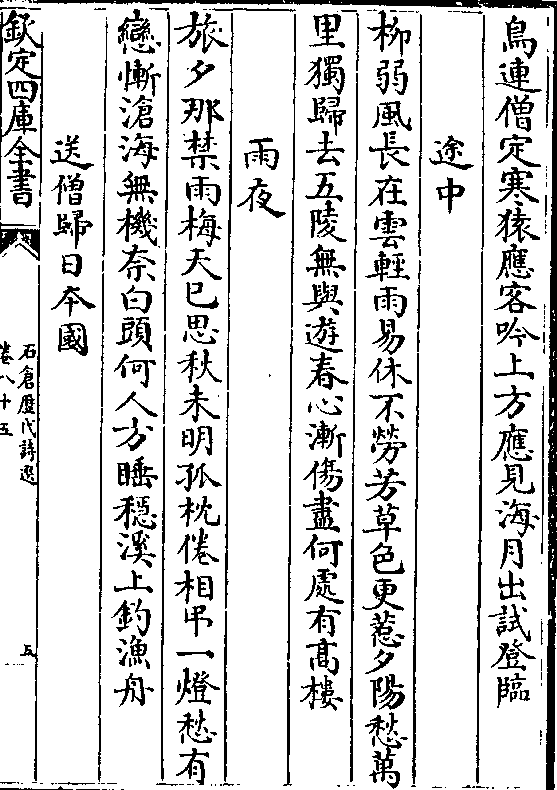 鳥連僧定寒猿應客吟上方應見海月出試登臨
途中
柳弱風長在雲輕雨易休不勞芳草色更惹夕陽愁萬
里獨歸去五陵無與遊春心漸傷盡何處有高樓
雨夜
旅夕那禁雨梅天已思秋未明孤枕倦相弔一燈愁有
戀慚滄海無機奈白頭何人方睡穩溪上釣漁舟
送僧歸日本國
欽定四庫全書
石倉歷代詩選
卷八十五
五